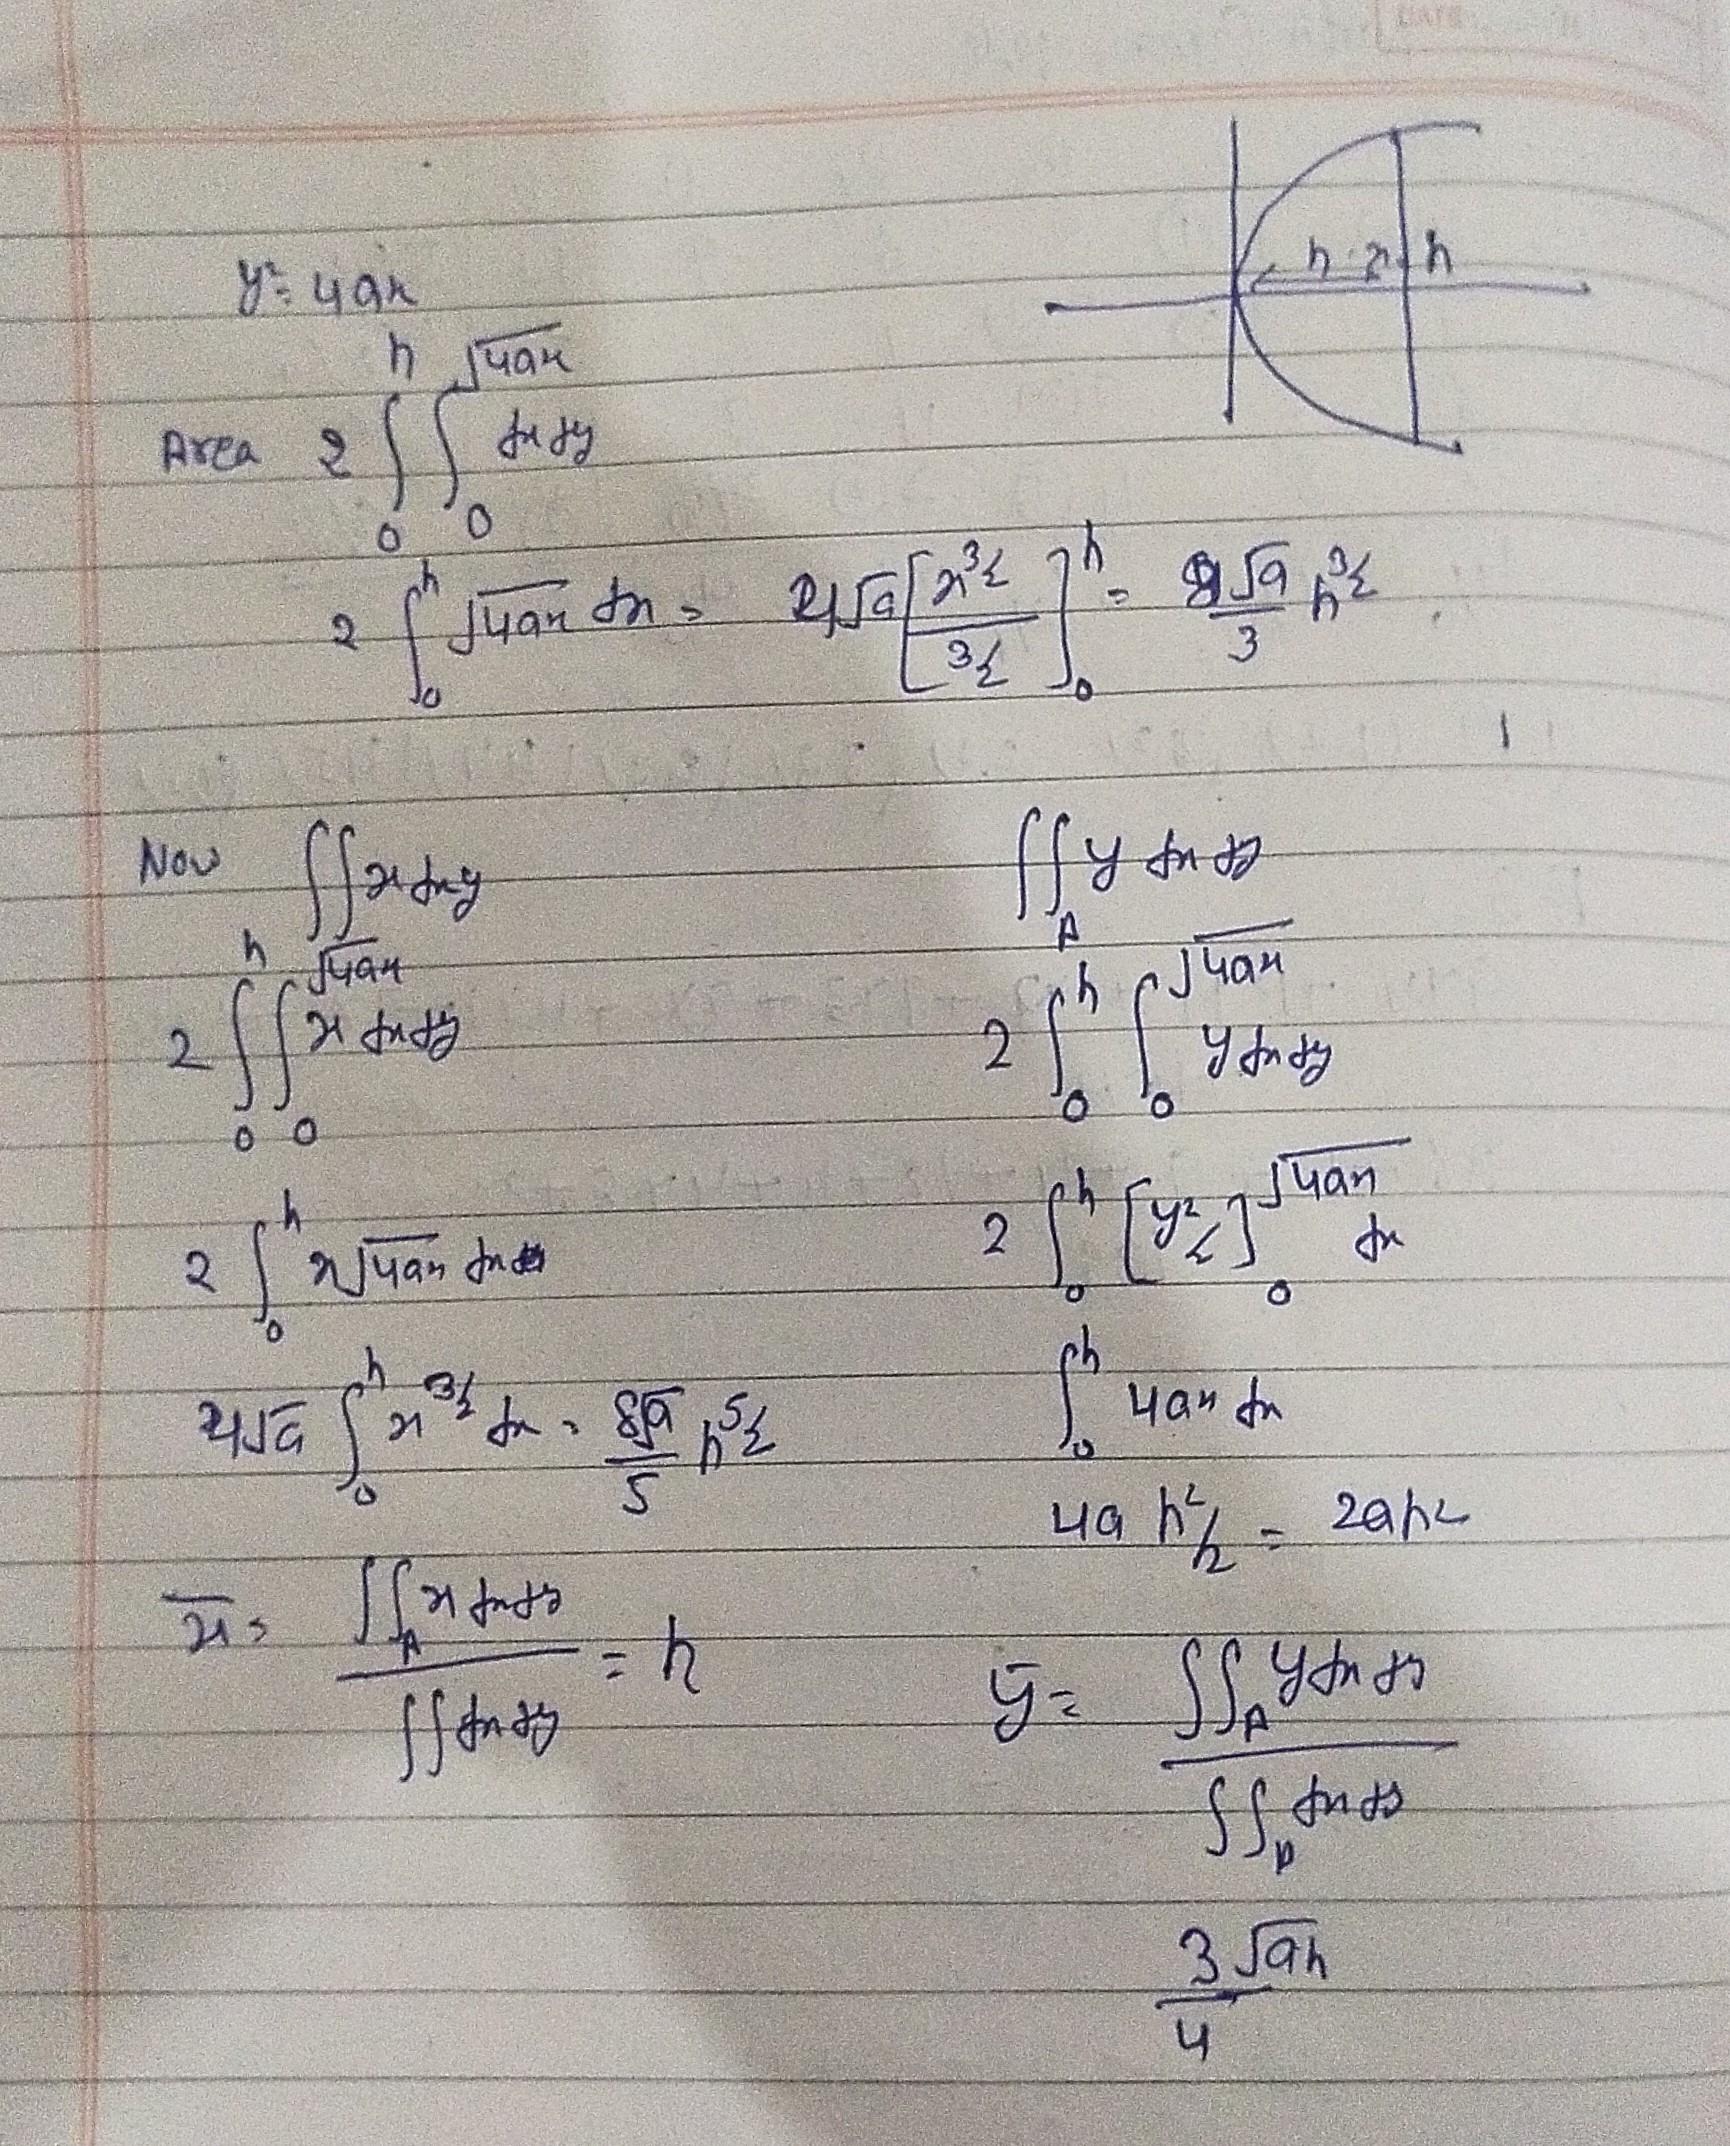 h x h
y² = 4ax
Area 2 ∫₀ʰ ∫₀^√4ax dx dy
2 ∫₀ʰ √4ax dx = 4√a [x^3/2 / 3/2]₀ʰ = 8√a/3 h^3/2
Now ∫∫ x dxy
2 ∫₀ʰ ∫₀^√4ax x dx dy
2 ∫₀ʰ x√4ax dx
4√a ∫₀ʰ x^3/2 dx = 8√a/5 h^5/2
x̄ = ∫∫_A x dx dy / ∫∫ dx dy = h
∫∫_A y dx dy
2 ∫₀ʰ ∫₀^√4ax y dx dy
2 ∫₀ʰ [y²/2]₀^√4ax dx
∫₀ʰ 4ax dx
4a h²/2 = 2ah²
ȳ = ∫∫_A y dx dy / ∫∫_A dx dy
3√ah / 4